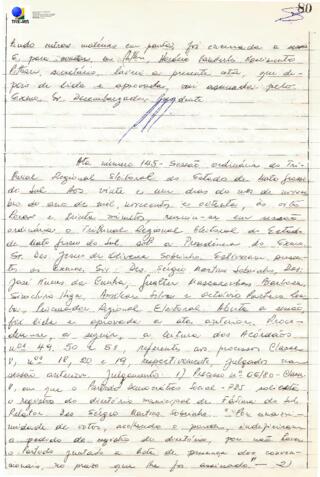 TRE-MS
80
tendo outras matérias em pauta, foi encerrada a sessão
E, para constar, eu, Horácio
secretário, lavrei a presente ata, que de-
pois de lida e aprovada, vai assinada pelo
Exmo. Sr. Desembargador Presidente
Ata número 145 - Sessão ordinária do Tri-
bunal Regional Eleitoral do Estado de Mato Grosso
do Sul. Aos vinte e um dias do mês de novem-
bro do ano de mil, novecentos e oitenta, às oito
horas e trinta minutos, reuniu-se em sessão
ordinária o Tribunal Regional Eleitoral do Estado
de Mato Grosso do Sul, sob a Presidência do Exmo.
Sr. Des. Jesus de Oliveira Sobrinho. Estiveram presen-
tes os Exmos. Srs. Des. Sérgio Martins Sobrinho, Drs.
José Nunes da Cunha, Mascarenhas Barbosa,
Higa, Silva e Octávio Pacheco
Procurador Regional Eleitoral. Aberta a sessão
foi lida e aprovada a ata anterior. Proce-
deu-se, a seguir, a leitura dos Acórdãos
nºs 49, 50 e 51, referente aos processos Classe
V, nºs 18, 20 e 19, respectivamente julgados na
sessão anterior. Julgamento: 1) Processo nº 06/80 - Classe
V, em que o Partido Democrático Social - PDS solicita
o registro do diretório municipal de Fátima do Sul
Relator Des. Sérgio Martins Sobrinho. "Por unani-
midade de votos, acolhendo o parecer, indeferiram
o pedido de registro de diretório, por não haver
o Partido juntado a lista de presença dos conven-
cionais, no prazo que lhe foi assinado." - 2)